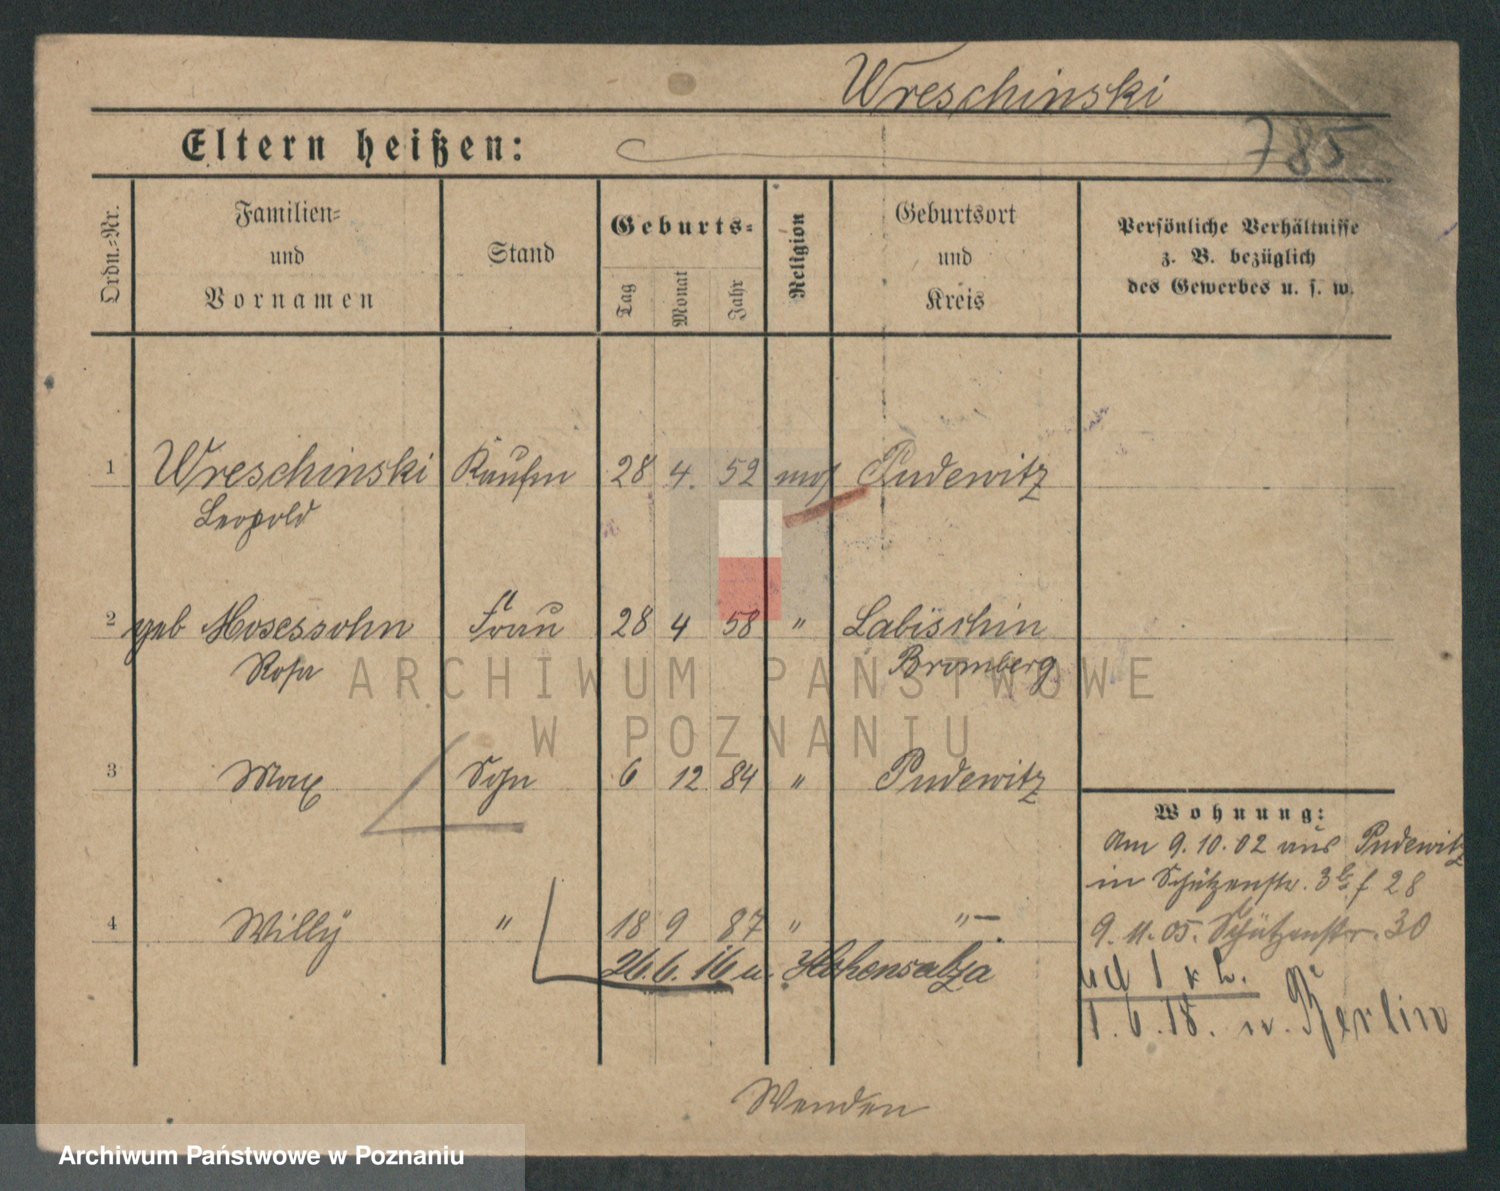 Wreschinski
Eltern heißen:
785
Ordn.=Nr.
Familien=
und
Vornamen
Stand
Geburts=
Tag
Monat
Jahr
Religion
Geburtsort
und
Kreis
Persönliche Verhältnisse
z. B. bezüglich
des Gewerbes u. s. w.
1 Wreschinski Kaufm 28 4. 52 mos Pudewitz
Leopold
2 geb Mosessohn Frau 28 4 58 " Labischin
Rosa Bromberg
3 Max Sohn 6 12 84 " Pudewitz
Wohnung:
Am 9.10.02 aus Pudewitz
in Schützenstr. 28
4 Willÿ " 18 9 87 " "—
9.11.05. Schützenstr. 30
26.6.16 n. Hohensalza
1.6.18. n. Berlin
Wenden
ARCHIWUM PAŃSTWOWE
W POZNANIU
Archiwum Państwowe w Poznaniu